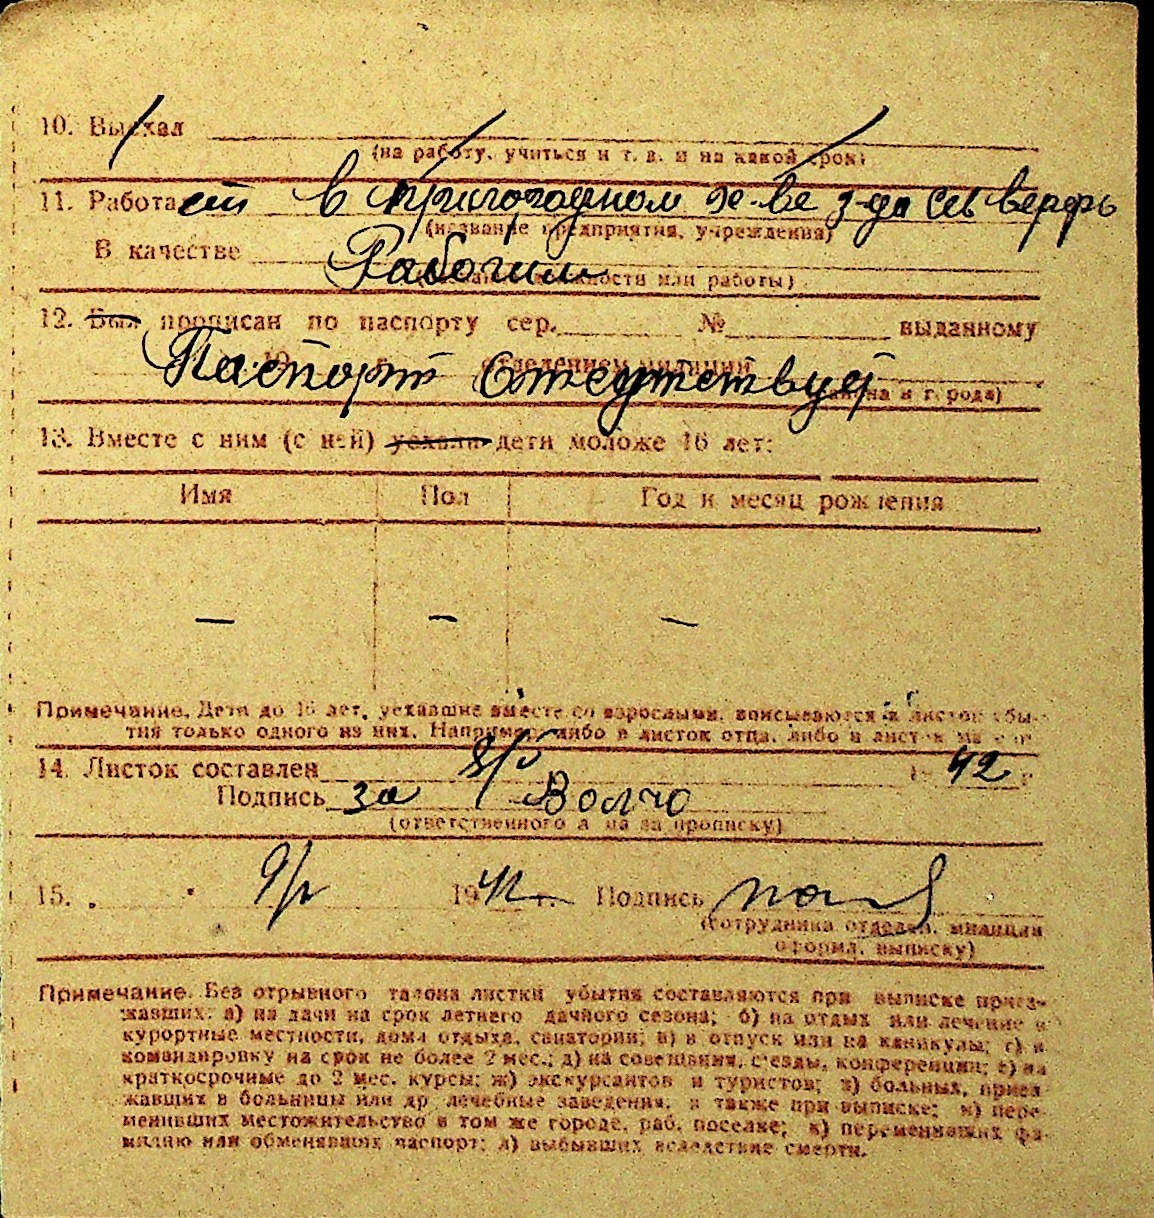 10. Выехал
(на работу, учиться и т. п. и на какой срок)
11. Работает в пригородном х-ве з-да Сев верфь
(название предприятия, учреждения)
В качестве Рабочим
(название должности или работы)
12. Был прописан по паспорту сер. № выданному
19 г. отделением милиции
Паспорт Отсутствует
(района и города)
13. Вместе с ним (с ней) уехали дети моложе 16 лет:
Имя Пол Год и месяц рождения
— — —
Примечание. Дети до 16 лет, уехавшие вместе со взрослыми, вписываются в листок убы-
тия только одного из них. Например, либо в листок отца, либо в листок матери
14. Листок составлен 1942 г.
Подпись за Волчо
(ответственного лица за прописку)
15. 1942 г. Подпись
(сотрудника отделен. милиции
оформл. выписку)
Примечание. Без отрывного талона листки убытия составляются при выписке приез-
жавших: а) на дачи на срок летнего дачного сезона; б) на отдых или лечение в
курортные местности, дома отдыха, санатории; в) в отпуск или на каникулы; г) в
командировку на срок не более 2 мес.; д) на совещания, съезды, конференции; е) на
краткосрочные до 2 мес. курсы; ж) экскурсантов и туристов; з) больных, приез-
жавших в больницы или др лечебные заведения, а также при выписке; и) пере-
менивших местожительство в том же городе, раб. поселке; к) переменивших фа-
милию или обменявших паспорт; л) выбывших вследствие смерти.